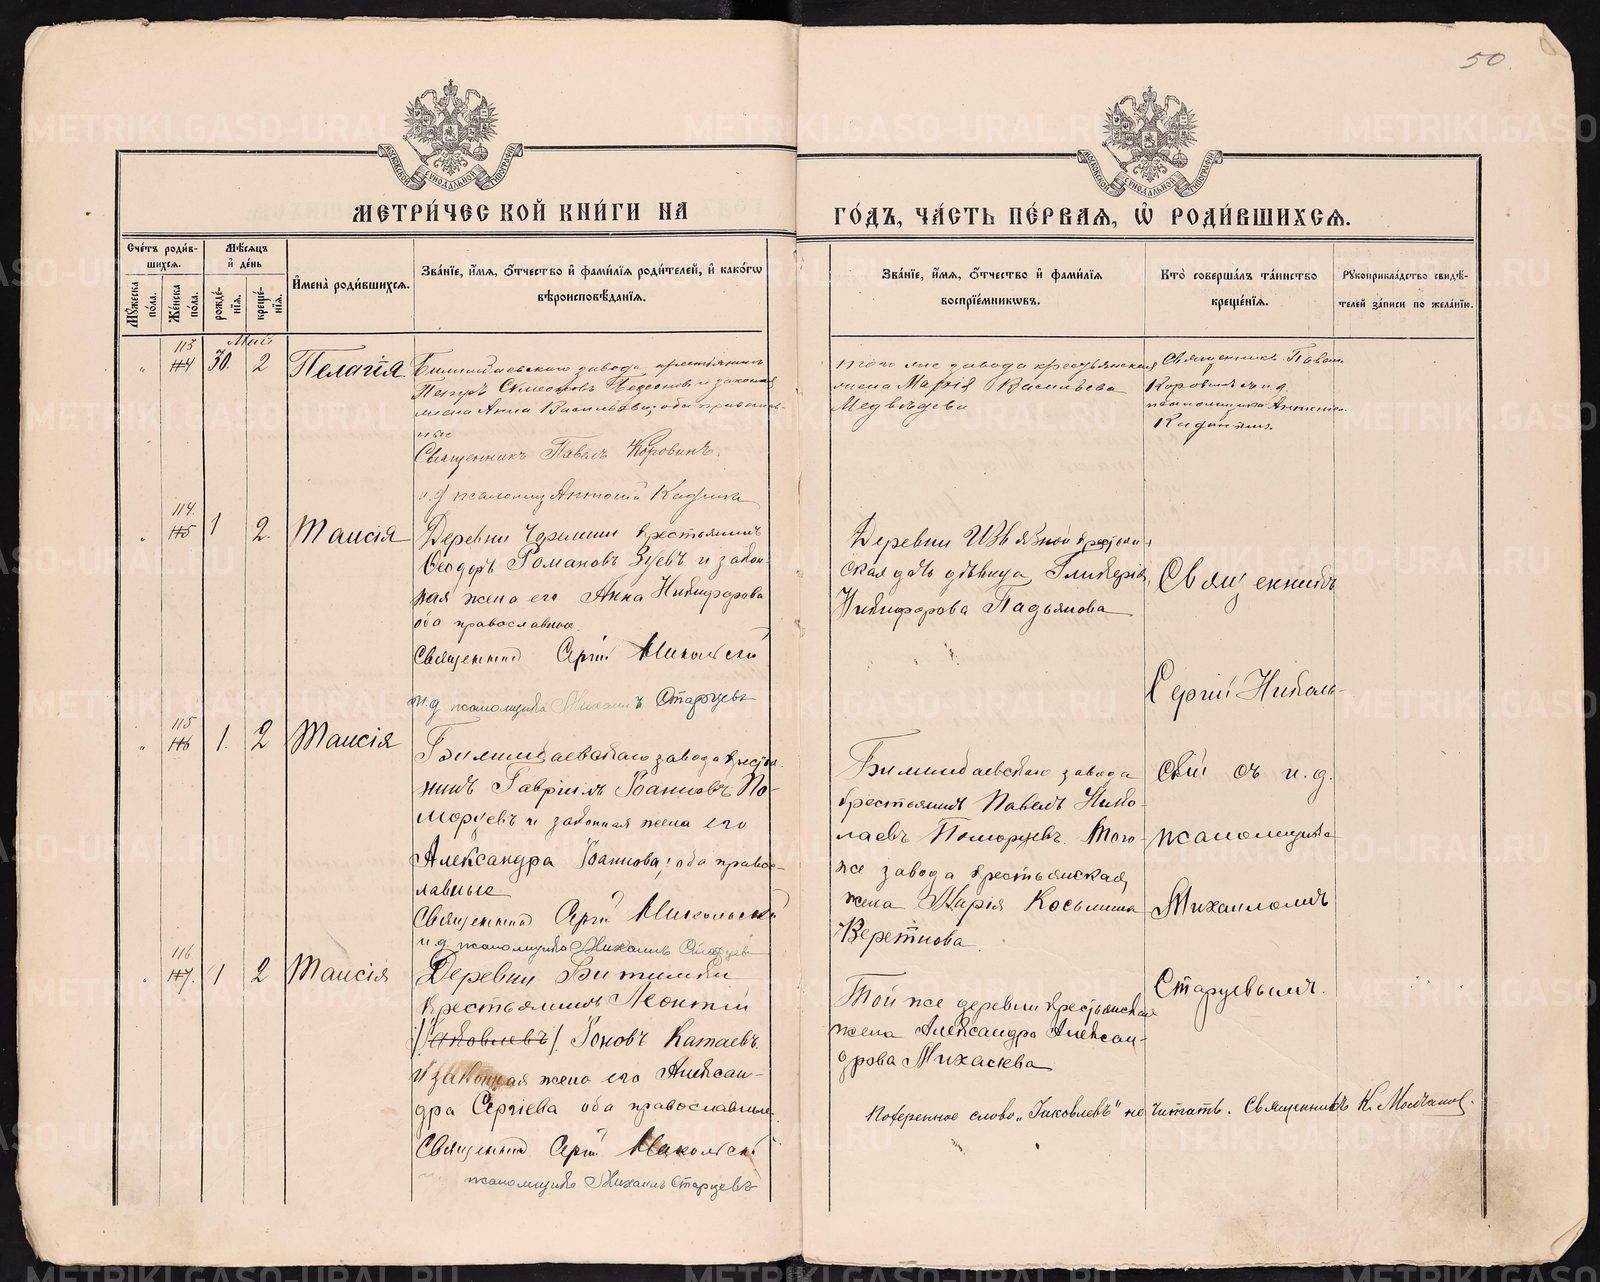 50.
МОСКОВСКОЙ СѴНОДАЛЬНОЙ ТИПОГРАФІИ
МОСКОВСКОЙ СѴНОДАЛЬНОЙ ТИПОГРАФІИ
МЕТРИ́ЧЕС КОЙ КНИ́ГИ НА
ГО́ДЪ, ЧА́СТЬ ПЕ́РВАЯ, Ѡ҆ РОДИ́ВШИХСЯ.
Сче́тъ роди́вшихся.
Мꙋ́жеска по́ла.
Же́нска по́ла.
Мѣ́сяцъ и҆ де́нь
рожде́нїя.
креще́нїя.
И҆мена̀ роди́вшихся.
Зва́нїе, и҆́мя, ѻ҆́тчество и҆ фами́лїя роди́телей, и҆ како́гѡ
вѣроисповѣ́данїя.
Зва́нїе, и҆́мя, ѻ҆́тчество и҆ фами́лїя
воспрїе́мникѡвъ.
Кто̀ соверша́лъ та́инство
креще́нїя.
Рꙋкоприкла́дство свидѣ́-
телей за́писи по жела́нїю.
Май
113
114
30. 2
Пелагія
Билимбаевскаго завода, крестьянинъ
Петръ Симеоновъ и законная
жена Анна Васильева; оба православ-
ные
Священникъ Павелъ Коровинъ.
и.д псаломщ Антоній
того же завода крестьянская
жена Марія Васильева
Медвѣдева
Священникъ Павелъ
Коровинъ съ и.д.
псаломщика Антоніемъ
114.
115
1 2.
Таисія
Деревни Черемши крестьянинъ
Ѳеодоръ Романовъ Зуевъ и закон-
ная жена его Анна Никифорова
оба православные.
Священникъ Сергій Никольскій
и.д. псаломщика Михаилъ Старцевъ
Деревни Извязной крестьян-
ская дочь дѣвица Гликерія
Никифорова Падьянова
Священникъ
Сергій Николь-
скій съ и.д.
псаломщика
Михаиломъ
Старцевымъ.
115
116
1. 2
Таисія
Билимбаевскаго завода крестья-
нинъ Гавріилъ Іоанновъ По-
морцевъ и законная жена его
Александра Іоаннова; оба право-
славные
Священникъ Сергій Никольскій
и.д. псаломщика Михаилъ Старцевъ
Билимбаевскаго завода
крестьянинъ Павелъ Нико-
лаевъ Поморцевъ. Того-
же завода крестьянская
жена Марія Косьмина
Веретнова.
116
117.
1 2
Таисія
Деревни Битимки
крестьянинъ Леонтій
/Іаковлевъ/ Іоновъ Катаевъ
и законная жена его Алексан-
дра Сергіева оба православные.
Священникъ Сергій Никольскій
псаломщика Михаилъ Старцевъ
Той же деревни крестьянская
жена Александра Алексан-
дрова Михалева
Почеренное слово „Іаковлевъ" не читать. Священникъ К. Молчановъ.
METRIKI.GASO-URAL.RU